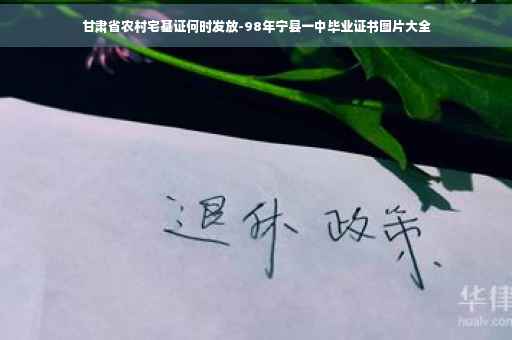 甘肃省农村宅基证何时发放-98年宁县一中毕业证书图片大全
退休 政策
华律
hualv.com